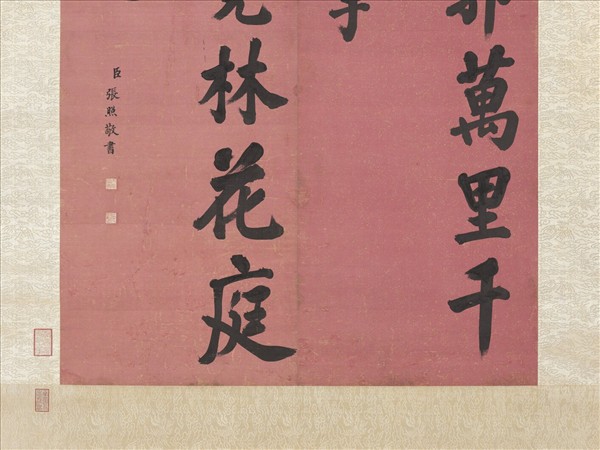 萬里千
林花庭
臣張照敬書